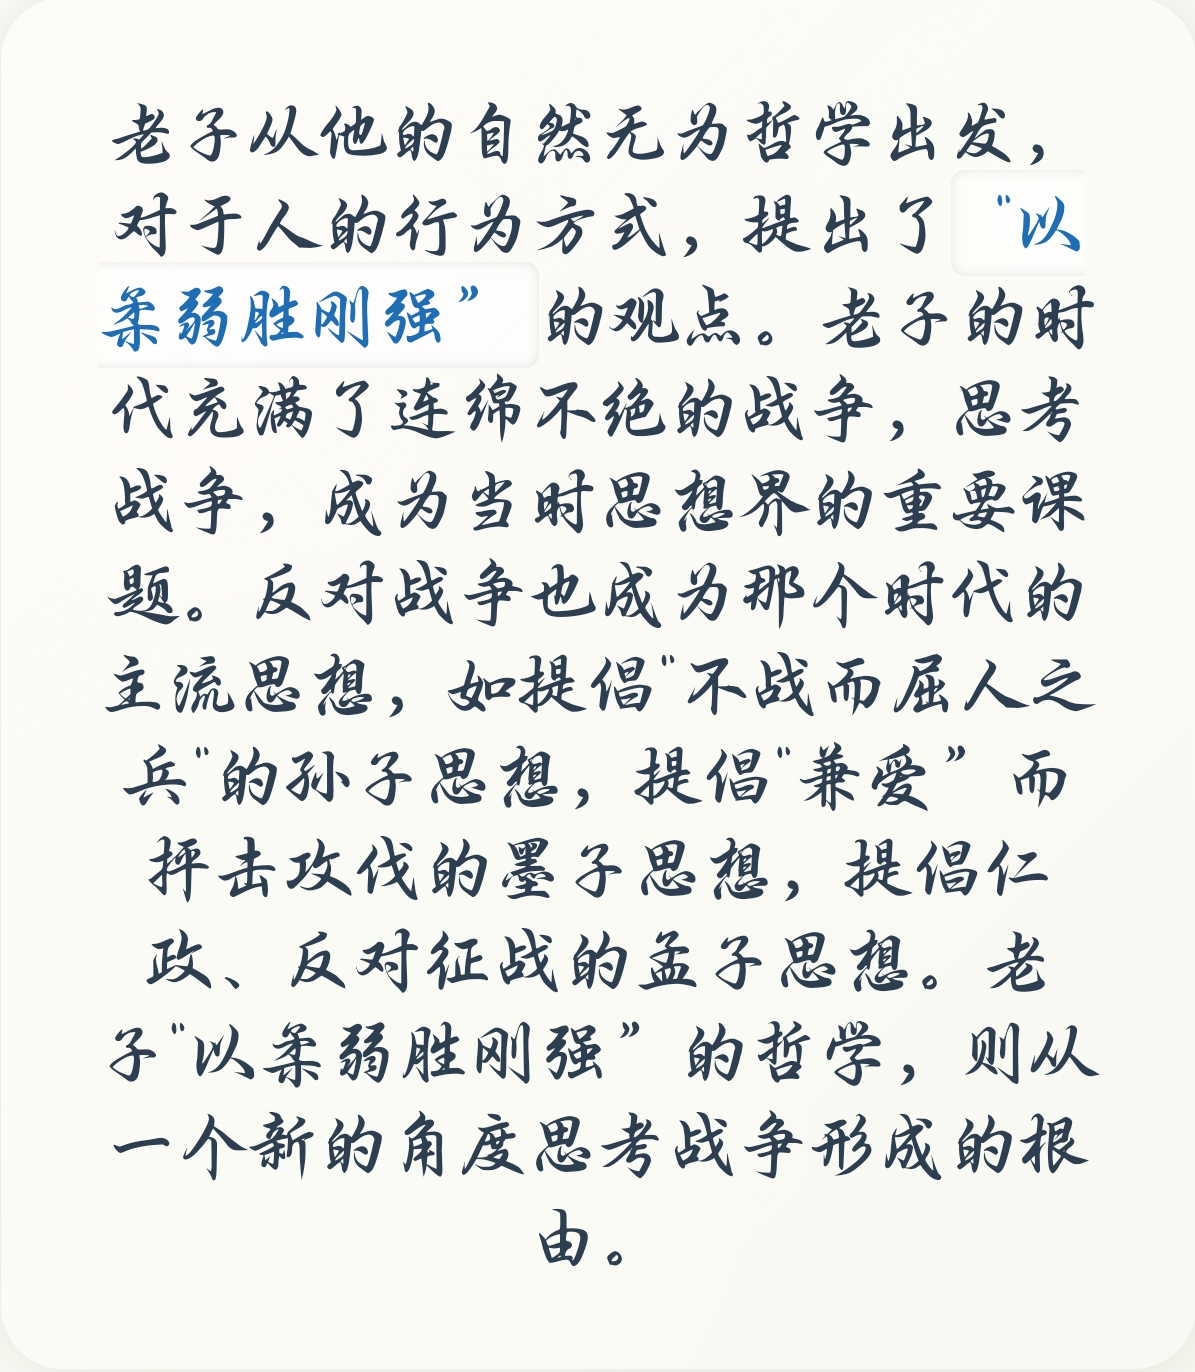 老子从他的自然无为哲学出发，
对于人的行为方式，提出了“以
柔弱胜刚强”的观点。老子的时
代充满了连绵不绝的战争，思考
战争，成为当时思想界的重要课
题。反对战争也成为那个时代的
主流思想，如提倡"不战而屈人之
兵"的孙子思想，提倡"兼爱”而
抨击攻伐的墨子思想，提倡仁
政、反对征战的孟子思想。老
子"以柔弱胜刚强”的哲学，则从
一个新的角度思考战争形成的根
由。